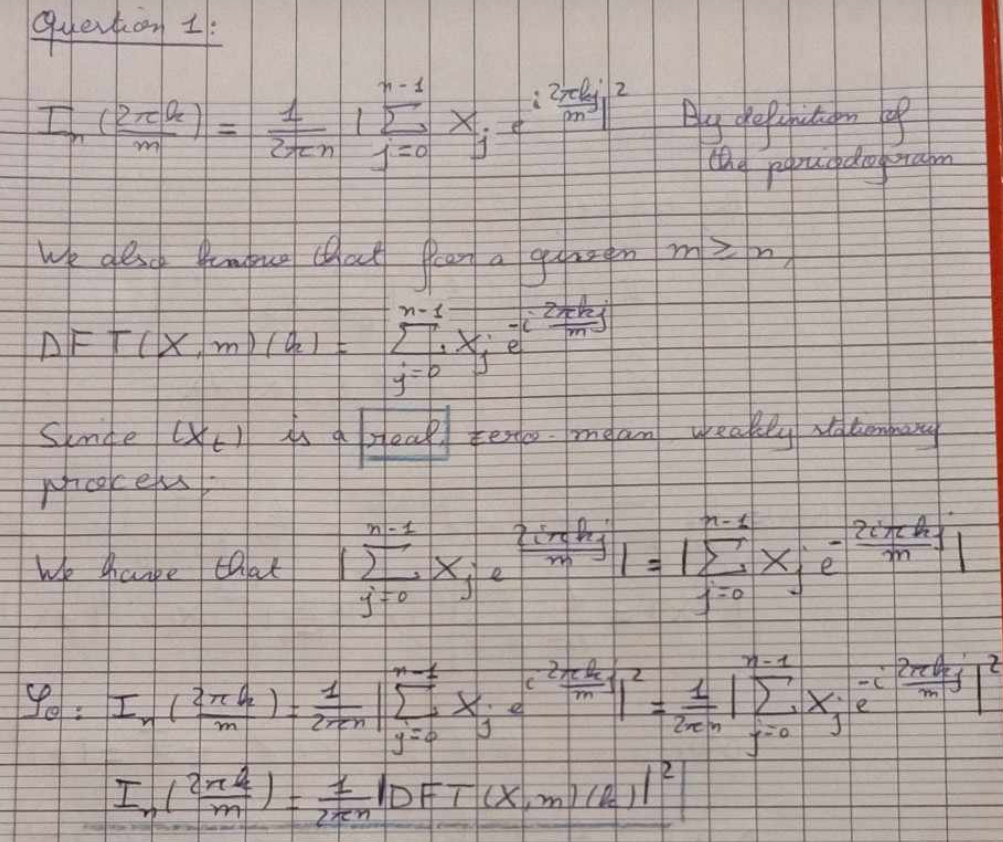 Question 1:
I_n (2πk/m) = 1/(2πn) |∑_{j=0}^{n-1} X_j e^{i 2πkj/m}|^2 By definition of
the periodogram
We also know that for a given m ≥ n,
DFT(X, m)(k) = ∑_{j=0}^{n-1} X_j e^{-i 2πkj/m}
Since (X_t) is a real, zero-mean weakly stationnary
process,
We have that |∑_{j=0}^{n-1} X_j e^{2iπkj/m}| = |∑_{j=0}^{n-1} X_j e^{-2iπkj/m}|
So: I_n (2πk/m) = 1/(2πn) |∑_{j=0}^{n-1} X_j e^{i 2πkj/m}|^2 = 1/(2πn) |∑_{j=0}^{n-1} X_j e^{-i 2πkj/m}|^2
I_n (2πk/m) = 1/(2πn) |DFT(X, m)(k)|^2